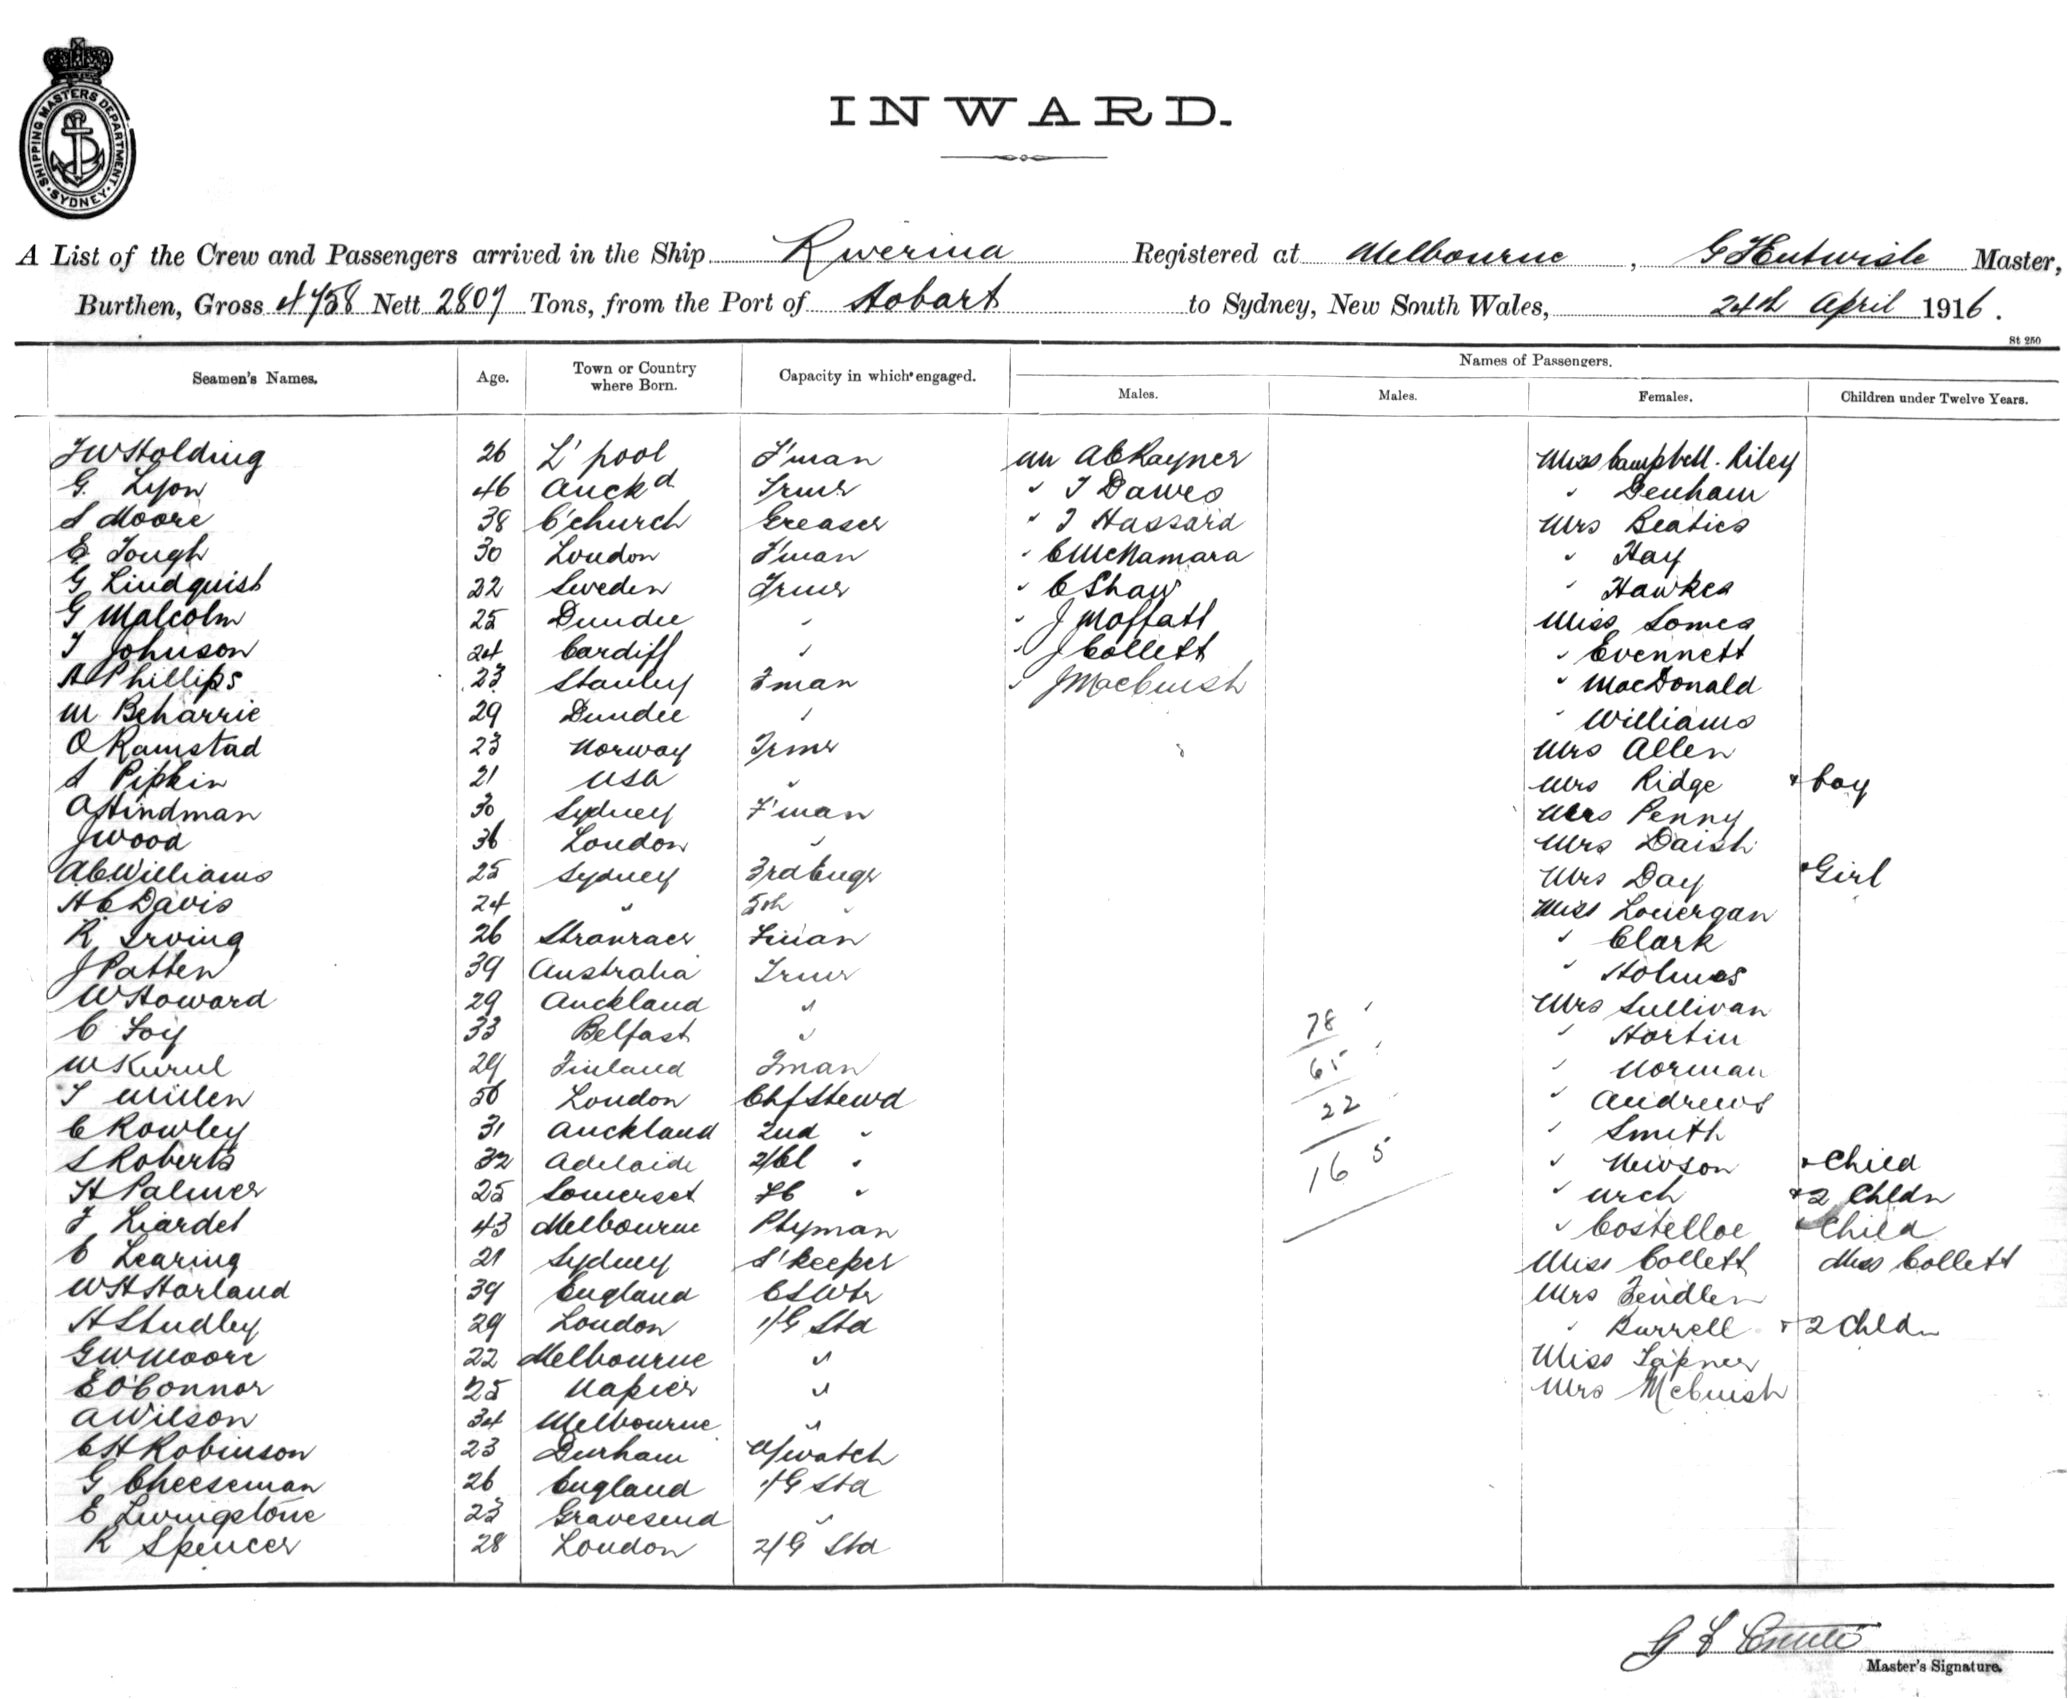 SHIPPING MASTERS DEPARTMENT. SYDNEY.
INWARD.
A List of the Crew and Passengers arrived in the Ship Riverina Registered at Melbourne, Master,
Burthen, Gross 4758 Nett 2807 Tons, from the Port of Hobart to Sydney, New South Wales, 24th April 1916.
St 250
Seamen's Names. Age. Town or Country where Born. Capacity in which engaged. Names of Passengers.
Males. Males. Females. Children under Twelve Years.
F W Holding 26 L'pool F'man Mr A C Rayner Miss Campbell-Riley
G. Lyon 46 Auckd Trmr " T Dawes " Denham
S Moore 38 C'church Greaser " T Hassard Mrs Beatics
E Tough 30 London F'man " C McNamara " Hay
G Lindquist 22 Sweden Trmr " C Shaw " Hawkes
G Malcolm 25 Dundee " " J Moffatt Miss Somes
T Johnson 24 Cardiff " " J Collett " Evennett
A Phillips 23 Stanley Fman " J MacCuish " MacDonald
M Beharrie 29 Dundee " " Williams
O Ramstad 23 Norway Trmr Mrs Allen
S Pipkin 21 USA " Mrs Ridge & boy
A Hindman 30 Sydney F'man Mrs Penny
J Wood 36 London " Mrs Daish
A C Williams 25 Sydney 3rd Engr Mrs Day & Girl
H C Davis 24 " 5th " Miss Lonergan
R Irving 26 Stranraer Fman " Clark
J Patten 39 Australia Trmr " Holmes
W Howard 29 Auckland " Mrs Sullivan
C Foy 33 Belfast " 78 " Hortin
W Kurul 29 Finland Fman 65 " Norman
T Millen 56 London Chf Stewd 22 " Andrews
C Rowley 31 Auckland 2nd " " Smith
S Roberts 32 Adelaide 2/Cl " 165 " Newson & Child
H Palmer 25 Somerset FC " " Urch & 2 Chldn
F Liardet 43 Melbourne Ptyman " Costelloe & Child
C Learing 21 Sydney S'keeper Miss Collett Miss Collett
W H Harland 39 England C S Wtr Mrs Fendlen
H Studley 29 London 1/G Std " Burrell & 2 Chldn
G W Moore 22 Melbourne " Miss Tapner
E O'Connor 25 Napier " Mrs McCuish
A Wilson 34 Melbourne "
C H Robinson 23 Durham N/watch
G Cheeseman 26 England 1/G Std
E Livingstone 23 Gravesend "
R Spencer 28 London 2/G Std
Master's Signature.